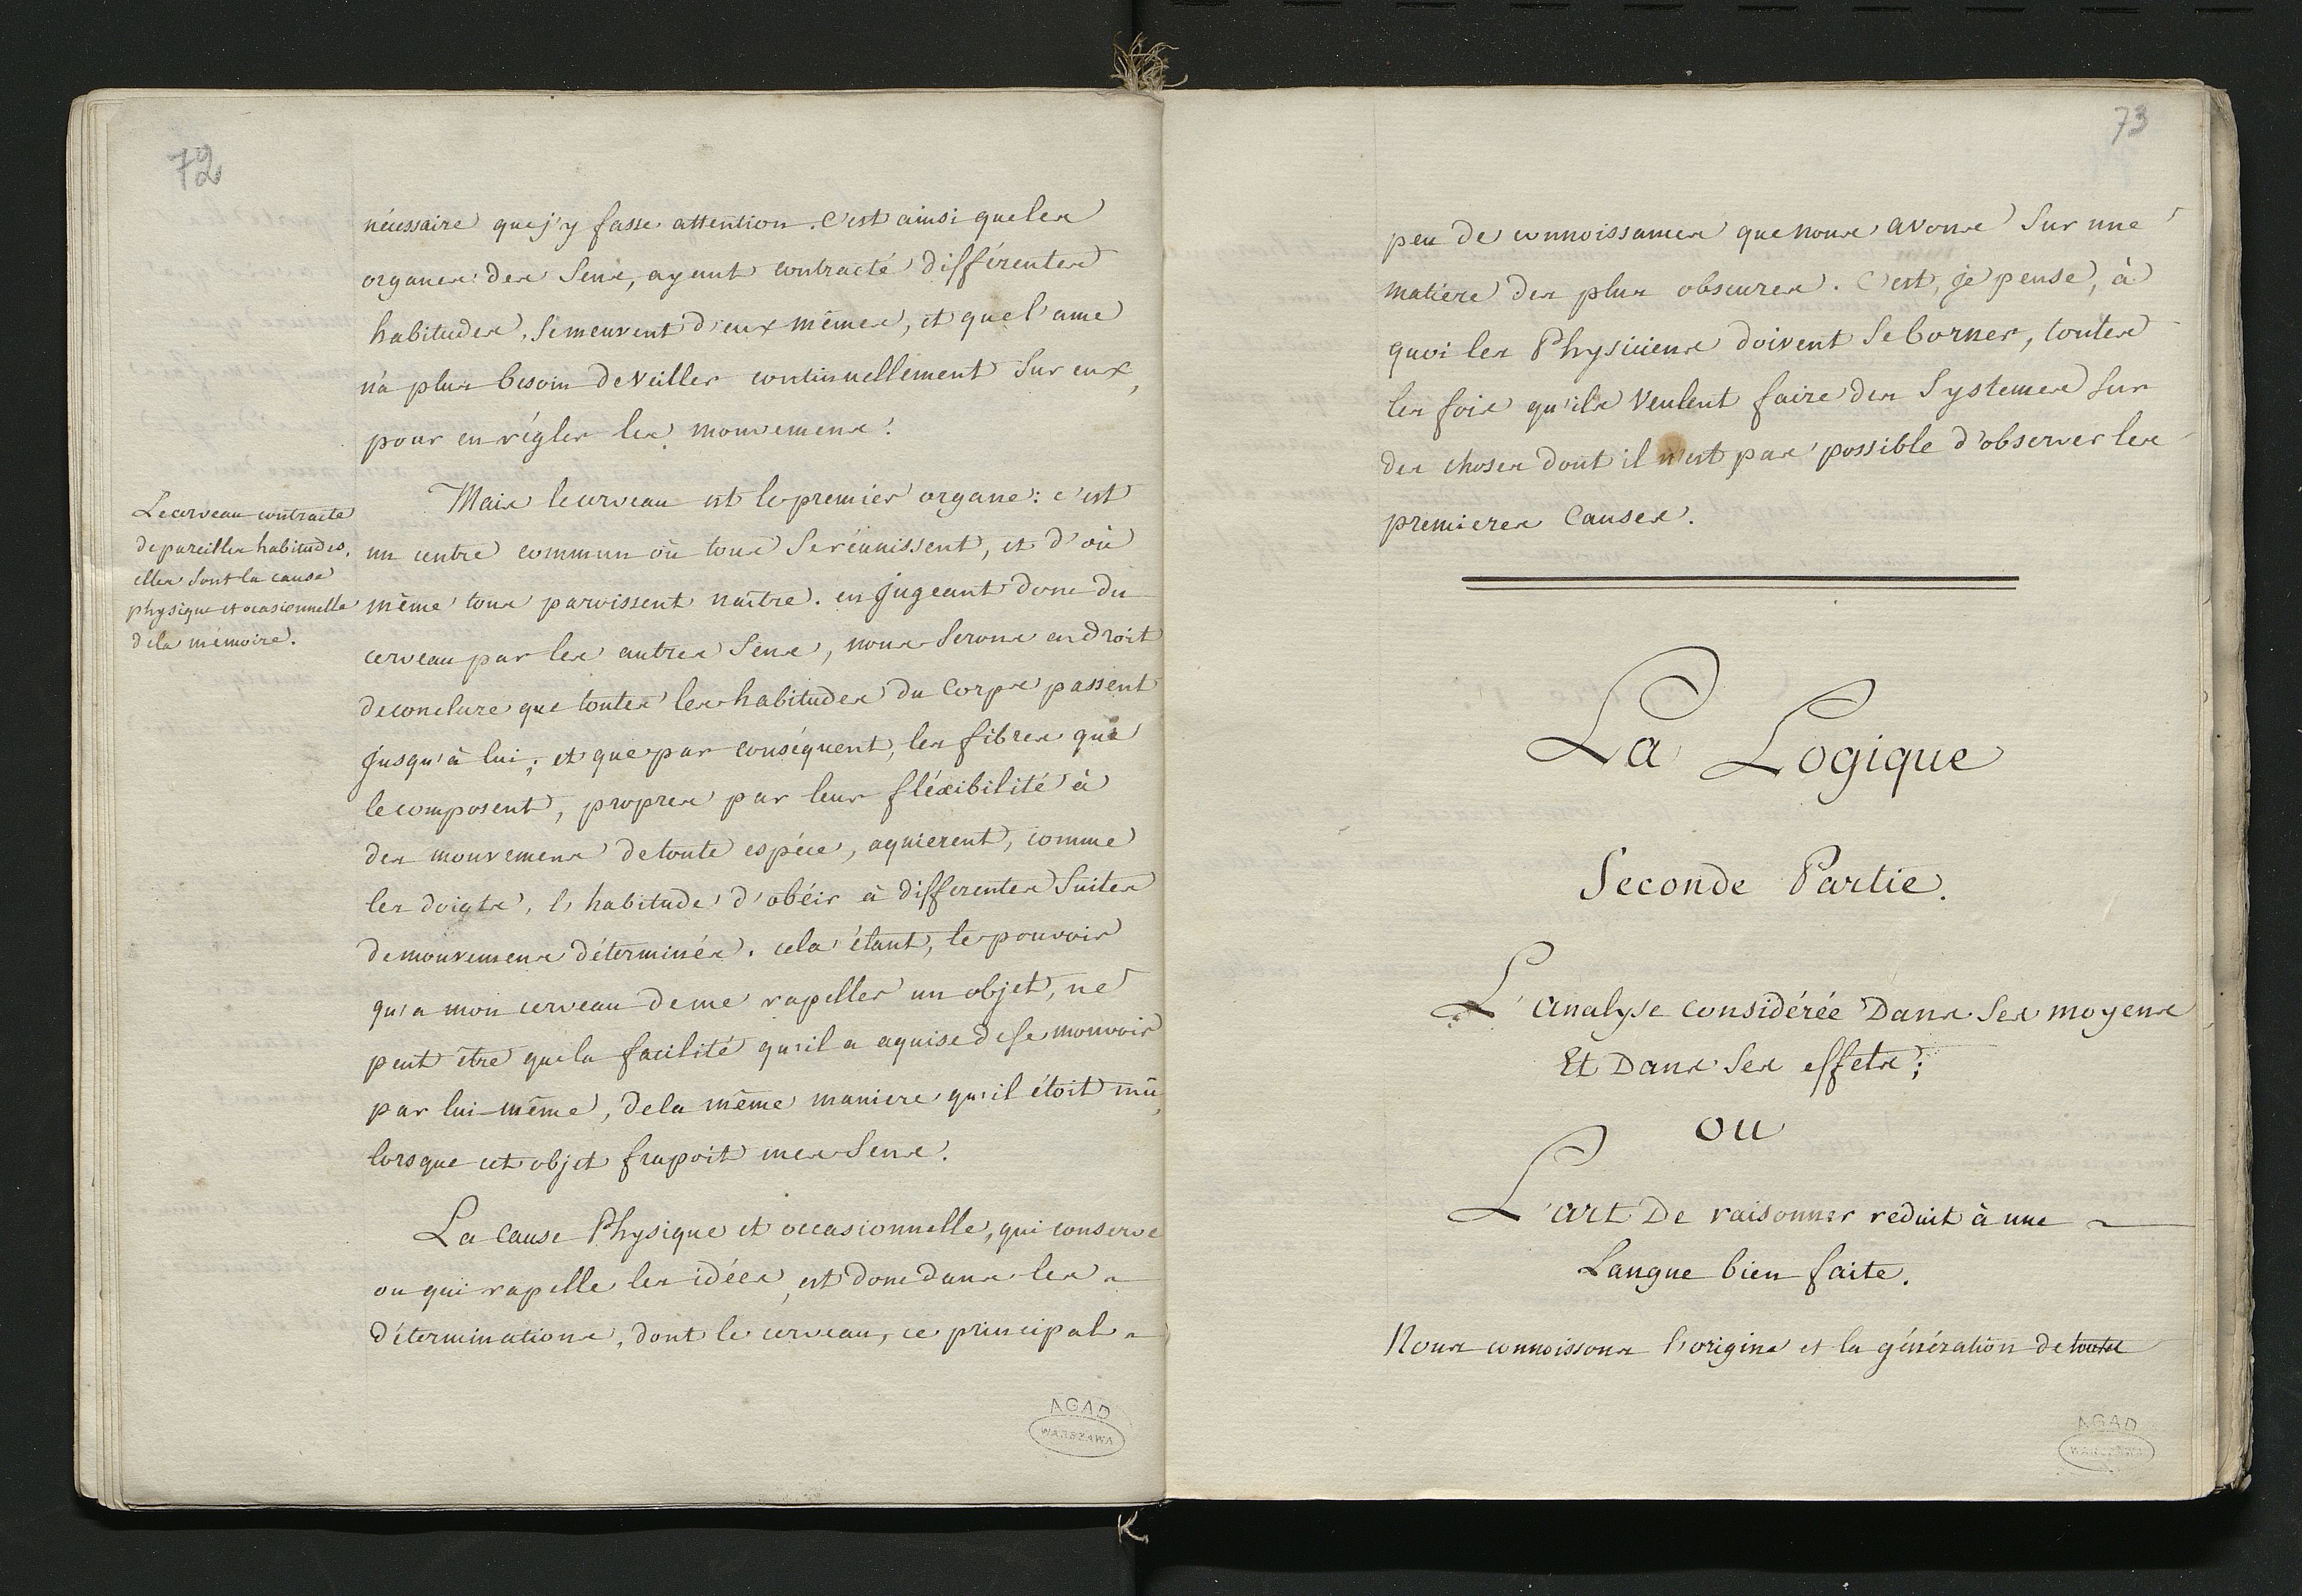 72
nécessaire que j'y fasse attention. c'est ainsi que les
organes des Sens, ayant contracté différentes
habitudes, se meuvent d'eux mêmes, et que l'ame
n'a plus besoin de veiller continuellement Sur eux,
pour en régler les mouvemens.
Mais le cerveau est le premier organe: c'est
un centre commun où tous Se réunissent, et d'où
même tous paroissent naître. en jugeant donc du
cerveau par les autres Sens, nous Serons en droit
de conclure que toutes les habitudes du Corps passent
jusqu'à lui; et que par conséquent, les fibres qui
le composent, propres par leur fléxibilité à
des mouvemens de toute espéce, aquierent, comme
les doigts, l'habitude d'obéir à differentes Suites
de mouvemens déterminés. cela étant, le pouvoir
qu'a mon cerveau de me rapeller un objet, ne
peut être que la facilité qu'il a aquise de se mouvoir
par lui-même, de la même maniere qu'il étoit mû,
lorsque cet objet frapoit mes Sens.
La Cause Physique et occasionnelle, qui conserve
ou qui rapelle les idées, est donc dans les
déterminations, dont le cerveau, ce principal
Le cerveau contracte
de pareilles habitudes,
elles Sont la cause
physique et ocasionnelle
de la mémoire.
AGAD
WARSZAWA
73
peu de connoissances que nous avons Sur une
matiere des plus obscures. C'est, je pense, à
quoi les Physiciens doivent Se borner, toutes
les fois qu'ils veulent faire des Systemes Sur
des choses dont il n'est pas possible d'observer les
premieres Causes.
La Logique
Seconde Partie.
L'Analyse considérée Dans Ses moyens
Et Dans Ses effets;
ou
L'art De raisonner réduit à une
Langue bien faite.
Nous connoissons l'origine et la génération de toutes
AGAD
WARSZAWA